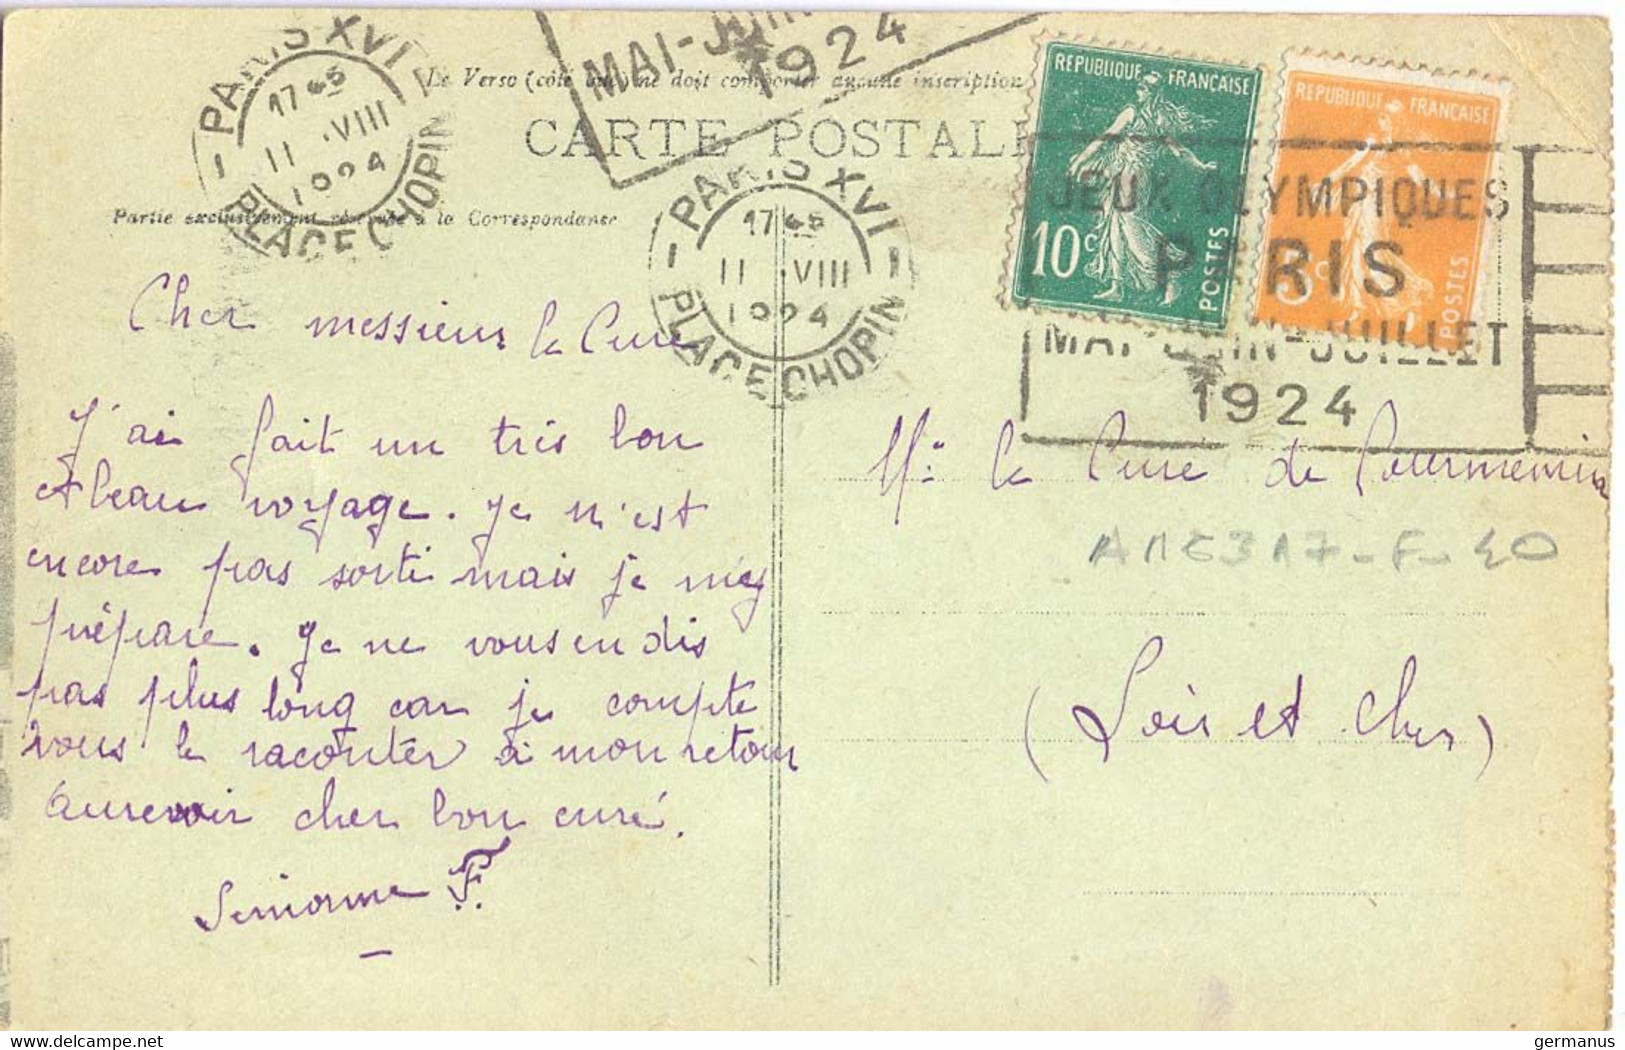 PARIS XVI
17 45
11 .VIII
1924
PLACE CHOPIN
MAI-JUIN
1924
Le Verso (côté vue) ne doit comporter aucune inscription
CARTE POSTALE
Partie exclusivement réservée à la Correspondance
PARIS XVI
17 45
11 .VIII
1924
PLACE CHOPIN
REPUBLIQUE FRANÇAISE
10c
POSTES
REPUBLIQUE FRANÇAISE
5c
POSTES
JEUX OLYMPIQUES
PARIS
MAI-JUIN-JUILLET
1924
Cher messieur le Cure
J'ai fait un très bon
et beau voyage. Je n'est
encore pas sorti mais je m'ey
prépare. Je ne vous en dis
pas plus long car je compte
vous le raconter à mon retour
Aurevoir cher bon curé.
Simonne F.
Mr le Cure de Courmemin
(Loir et Cher)
germanus